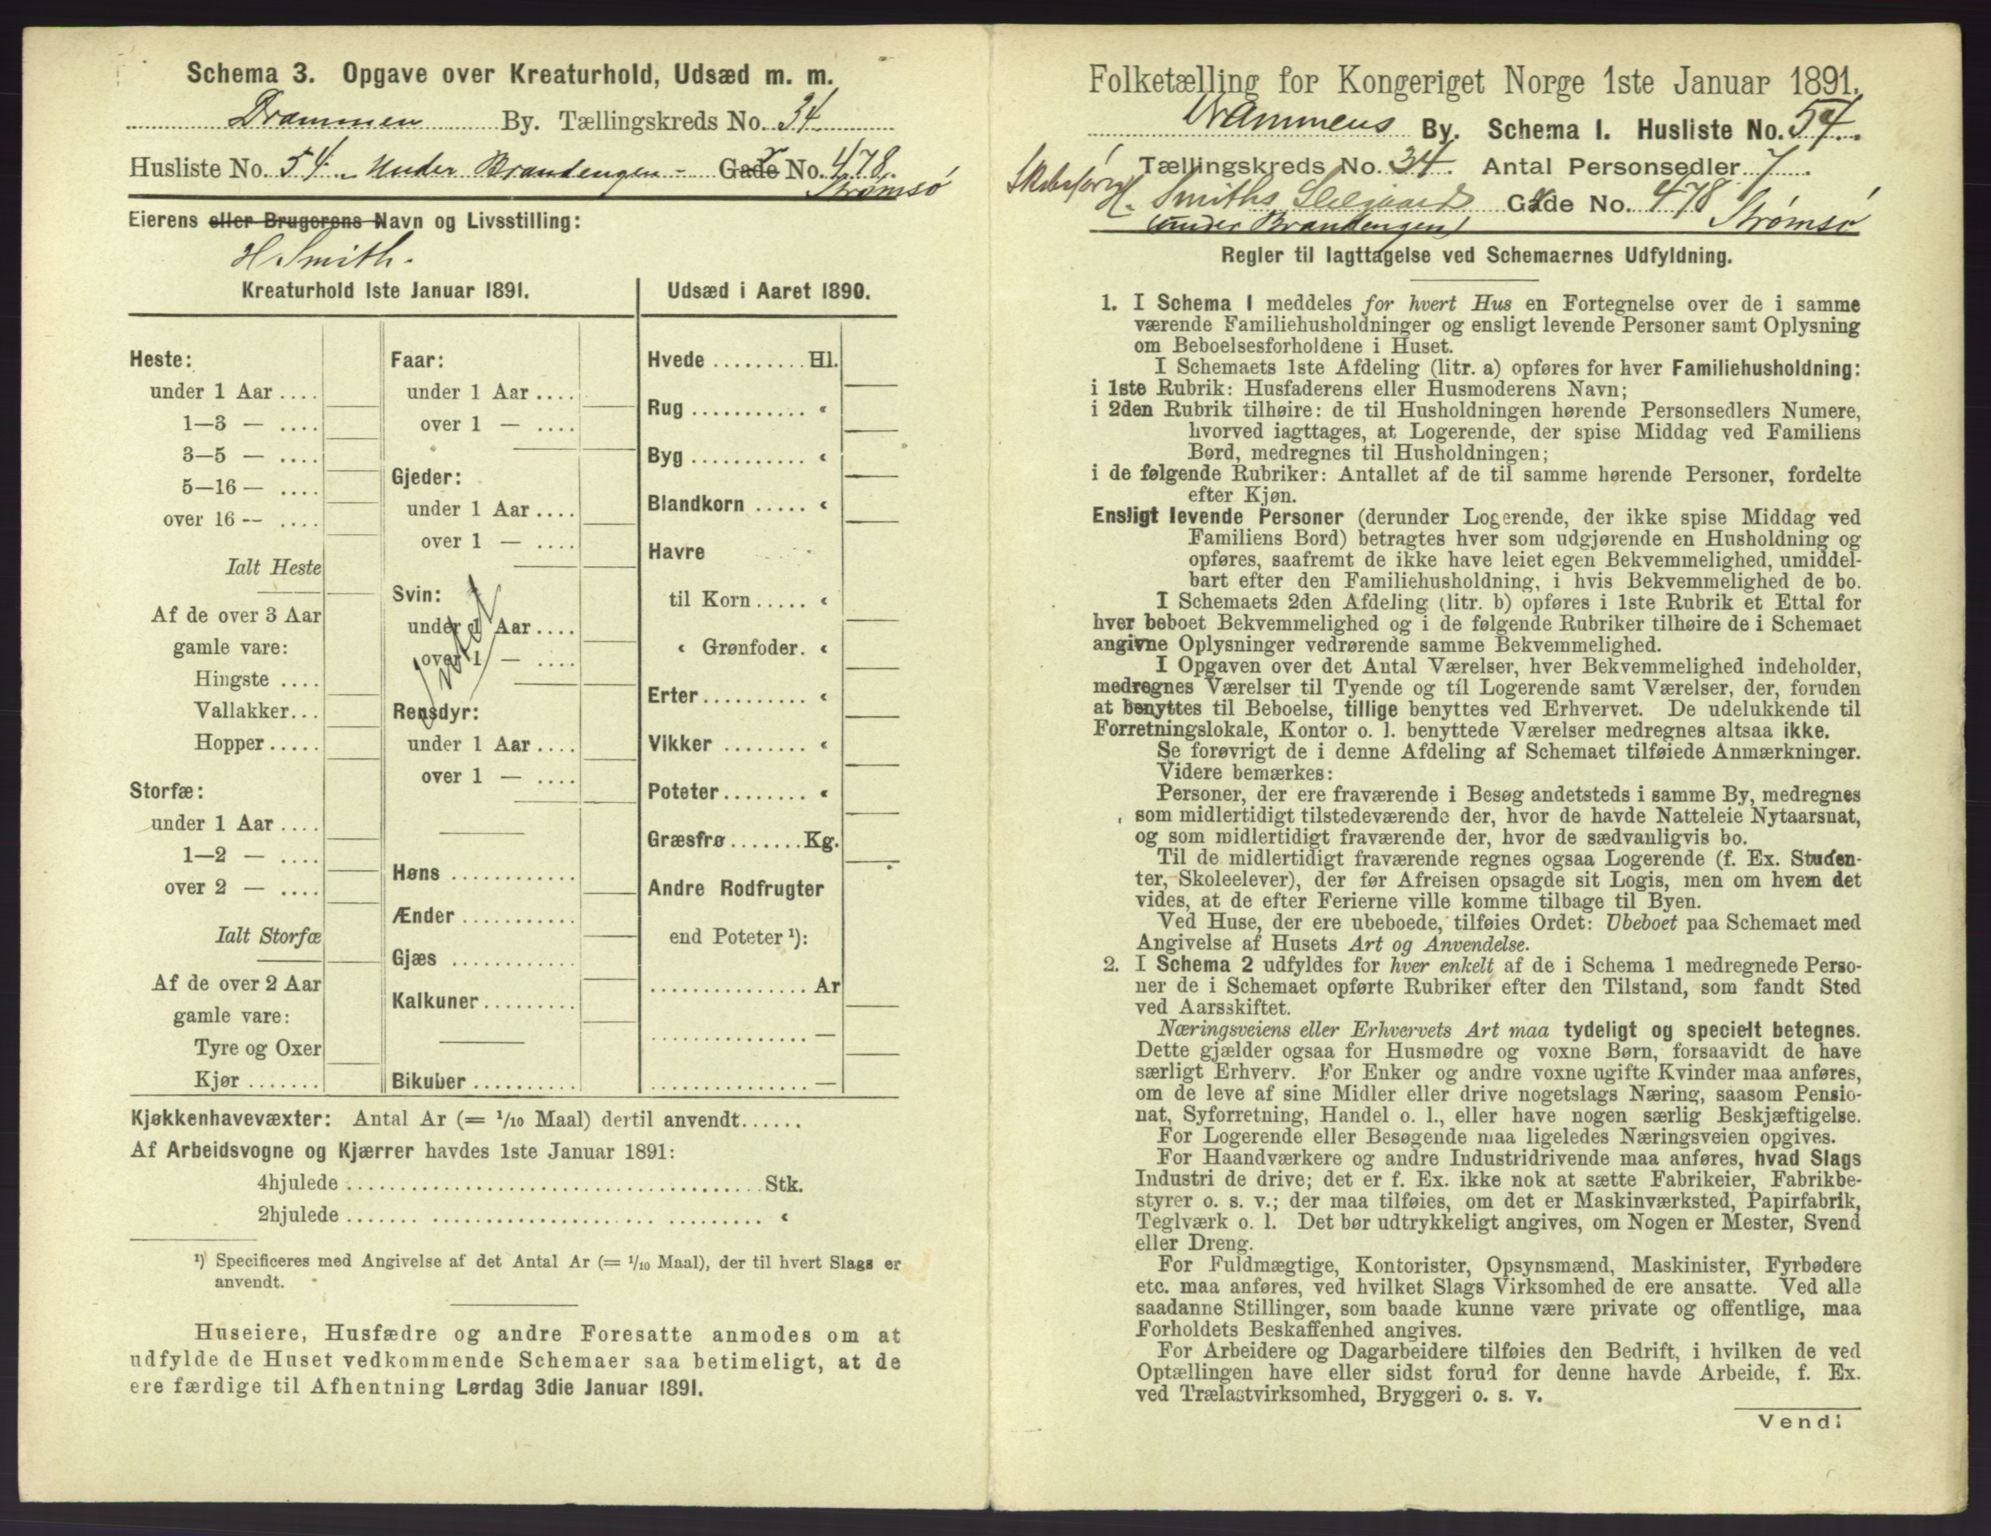 Schema 3. Opgave over Kreaturhold, Udsæd m. m.
Drammen By. Tællingskreds No. 34
Husliste No. 54. Under Brandengen - Gade No. 478.
Strømsø
Eierens eller Brugerens Navn og Livsstilling:
H. Smith.
Kreaturhold 1ste Januar 1891.
Heste:
under 1 Aar ....
1—3 — ....
3—5 — ....
5—16 — ....
over 16 -- ....
Ialt Heste
Af de over 3 Aar
gamle vare:
Hingste ....
Vallakker...
Hopper.....
Storfæ:
under 1 Aar ....
1—2 — ....
over 2 — ....
Ialt Storfæ
Af de over 2 Aar
gamle vare:
Tyre og Oxer
Kjør .......
Faar:
under 1 Aar ....
over 1 — ....
Gjeder:
under 1 Aar ....
over 1 — ....
Svin:
under 1 Aar....
over 1 — ....
Rensdyr:
under 1 Aar ....
over 1 — ....
Høns ............
Ænder ...........
Gjæs ............
Kalkuner.........
Bikuber ..........
Udsæd i Aaret 1890.
Hvede ......... Hl.
Rug ........... “
Byg ........... “
Blandkorn ..... “
Havre
til Korn ..... “
“ Grønfoder. “
Erter.......... “
Vikker ........ “
Poteter........ “
Græsfrø.......Kg.
Andre Rodfrugter
end Poteter ¹):
............... Ar
............... —
............... —
Kjøkkenhavevæxter: Antal Ar (= 1/10 Maal) dertil anvendt......
Af Arbeidsvogne og Kjærrer havdes 1ste Januar 1891:
4hjulede ...................................... Stk.
2hjulede ...................................... “
¹) Specificeres med Angivelse af det Antal Ar (= 1/10 Maal), der til hvert Slags er
anvendt.
Huseiere, Husfædre og andre Foresatte anmodes om at
udfylde de Huset vedkommende Schemaer saa betimeligt, at de
ere færdige til Afhentning Lørdag 3die Januar 1891.
Folketælling for Kongeriget Norge 1ste Januar 1891.
Drammens By. Schema I. Husliste No. 54.
Tællingskreds No. 34. Antal Personsedler 7.
H. Smiths Gade No. 478 Strømsø
(under Brandengen)
Regler til Iagttagelse ved Schemaernes Udfyldning.
1. I Schema 1 meddeles for hvert Hus en Fortegnelse over de i samme
værende Familiehusholdninger og ensligt levende Personer samt Oplysning
om Beboelsesforholdene i Huset.
I Schemaets 1ste Afdeling (litr. a) opføres for hver Familiehusholdning:
i 1ste Rubrik: Husfaderens eller Husmoderens Navn;
i 2den Rubrik tilhøire: de til Husholdningen hørende Personsedlers Numere,
hvorved iagttages, at Logerende, der spise Middag ved Familiens
Bord, medregnes til Husholdningen;
i de følgende Rubriker: Antallet af de til samme hørende Personer, fordelte
efter Kjøn.
Ensligt levende Personer (derunder Logerende, der ikke spise Middag ved
Familiens Bord) betragtes hver som udgjørende en Husholdning og
opføres, saafremt de ikke have leiet egen Bekvemmelighed, umiddel-
bart efter den Familiehusholdning, i hvis Bekvemmelighed de bo.
I Schemaets 2den Afdeling (litr. b) opføres i 1ste Rubrik et Ettal for
hver beboet Bekvemmelighed og i de følgende Rubriker tilhøire de i Schemaet
angivne Oplysninger vedrørende samme Bekvemmelighed.
I Opgaven over det Antal Værelser, hver Bekvemmelighed indeholder,
medregnes Værelser til Tyende og til Logerende samt Værelser, der, foruden
at benyttes til Beboelse, tillige benyttes ved Erhvervet. De udelukkende til
Forretningslokale, Kontor o. l. benyttede Værelser medregnes altsaa ikke.
Se forøvrigt de i denne Afdeling af Schemaet tilføiede Anmærkninger.
Videre bemærkes:
Personer, der ere fraværende i Besøg andetsteds i samme By, medregnes
som midlertidigt tilstedeværende der, hvor de havde Natteleie Nytaarsnat,
og som midlertidigt fraværende der, hvor de sædvanligvis bo.
Til de midlertidigt fraværende regnes ogsaa Logerende (f. Ex. Studen-
ter, Skoleelever), der før Afreisen opsagde sit Logis, men om hvem det
vides, at de efter Ferierne ville komme tilbage til Byen.
Ved Huse, der ere ubeboede, tilføies Ordet: Ubeboet paa Schemaet med
Angivelse af Husets Art og Anvendelse.
2. I Schema 2 udfyldes for hver enkelt af de i Schema 1 medregnede Perso-
ner de i Schemaet opførte Rubriker efter den Tilstand, som fandt Sted
ved Aarsskiftet.
Næringsveiens eller Erhvervets Art maa tydeligt og specielt betegnes.
Dette gjælder ogsaa for Husmødre og voxne Børn, forsaavidt de have
særligt Erhverv. For Enker og andre voxne ugifte Kvinder maa anføres,
om de leve af sine Midler eller drive nogetslags Næring, saasom Pensio-
nat, Syforretning, Handel o. l., eller have nogen særlig Beskjæftigelse.
For Logerende eller Besøgende maa ligeledes Næringsveien opgives.
For Haandværkere og andre Industridrivende maa anføres, hvad Slags
Industri de drive; det er f. Ex. ikke nok at sætte Fabrikeier, Fabrikbe-
styrer o. s. v.; der maa tilføies, om det er Maskinværksted, Papirfabrik,
Teglværk o. l. Det bør udtrykkeligt angives, om Nogen er Mester, Svend
eller Dreng.
For Fuldmægtige, Kontorister, Opsynsmænd, Maskinister, Fyrbødere
etc. maa anføres, ved hvilket Slags Virksomhed de ere ansatte. Ved alle
saadanne Stillinger, som baade kunne være private og offentlige, maa
Forholdets Beskaffenhed angives.
For Arbeidere og Dagarbeidere tilføies den Bedrift, i hvilken de ved
Optællingen have eller sidst forud for denne havde Arbeide, f. Ex.
ved Trælastvirksomhed, Bryggeri o. s. v.
Vend!